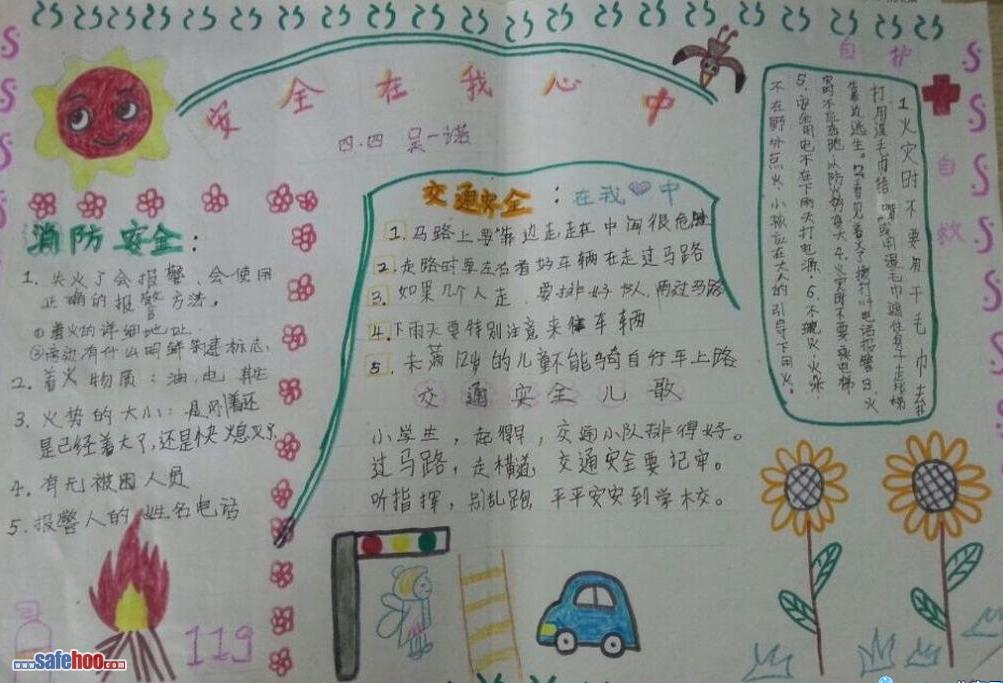 安全在我心中
四.四 吴一诺
消防安全：
1. 失火了会报警、会使用
正确的报警方法。
①着火的详细地址
②旁边有什么明鲜建标志，
2. 着火物质：油、电
3. 火势的大小：是刚着还
是已经着大了，还是快熄灭了
4. 有无被困人员
5. 报警人的姓名电话
119
交通安全：在我中
1. 马路上要靠边走走在中间很危险
2. 走路时要左右看好车辆在走过马路
3. 如果几个人走，要排好队，再过马路
4. 下雨天要特别注意来往车辆
5. 未满12岁的儿童不能骑自行车上路
交通安全儿歌
小学生，起得早，交通小队排得好。
过马路，走横道，交通安全要记牢。
听指挥，别乱跑，平平安安到学校。
自护
自救
1火灾时不要用干毛巾去扑
打用湿手
着边逃生。
4.火灾时不要乘电梯
5.安全用电不在下雨天打电源、6.不玩火、火柴
不在野外点火，小孩应在大人的引导下用火。
www.safehoo.com